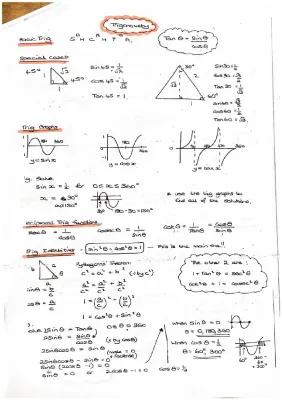 Trigonometry
Basic Trig
SOH CAH TOA
Tan θ = sinθ
cosθ
Special Cases
45°
√2
1
1
45°
sin 45 = 1/√2
cos 45 = 1/√2
Tan 45 = 1
30°
2
√3
60°
1
sin 30 = 1/2
cos 30 = √3/2
Tan 30 = 1/√3
sin 60 = √3/2
cos 60 = 1/2
Tan 60 = √3
Trig Graphs
y = sinx
y = cosx
180
360
Solve
sin x = 1/2 for 0 ≤ x ≤ 360°
x = 30°
180-30=150°
* use the trig graphs to
find all of the solutions.
Reciprocal Trig Functions
secθ = 1/cosθ
cosecθ = 1/sinθ
cotθ = 1/tanθ = cosθ/sinθ
Trig Identities - sin²θ + cos²θ = 1 - This is the main one!!
Pythagoras' Theorem
c² = a² + b² (÷ by c²)
c²/c² = a²/c² + b²/c²
1 = (a/c)² + (b/c)²
1 = cos²θ + sin²θ
sinθ = b/c
cosθ = a/c
The other 2 are:
1 + tan²θ = sec²θ
cot²θ + 1 = cosec²θ
2sinθ = Tanθ, 0≤θ≤360
2sinθ = sinθ/cosθ
(x by cosθ)
2sinθcosθ = sinθ
2sinθcosθ - sinθ = 0
sinθ (2cosθ - 1) = 0
sinθ = 0 or 2cosθ - 1 = 0 cosθ = 1/2
when sinθ = 0
θ = 0, 180, 360
when cosθ = 1/2
θ = 60°, 300°